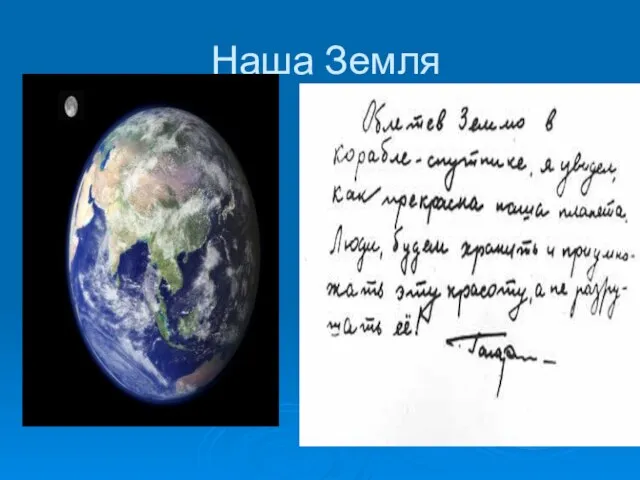 Наша Земля
Облетев Землю в
корабле-спутнике, я увидел,
как прекрасна наша планета.
Люди, будем хранить и приумно-
жать эту красоту, а не разру-
шать её!
Гагарин